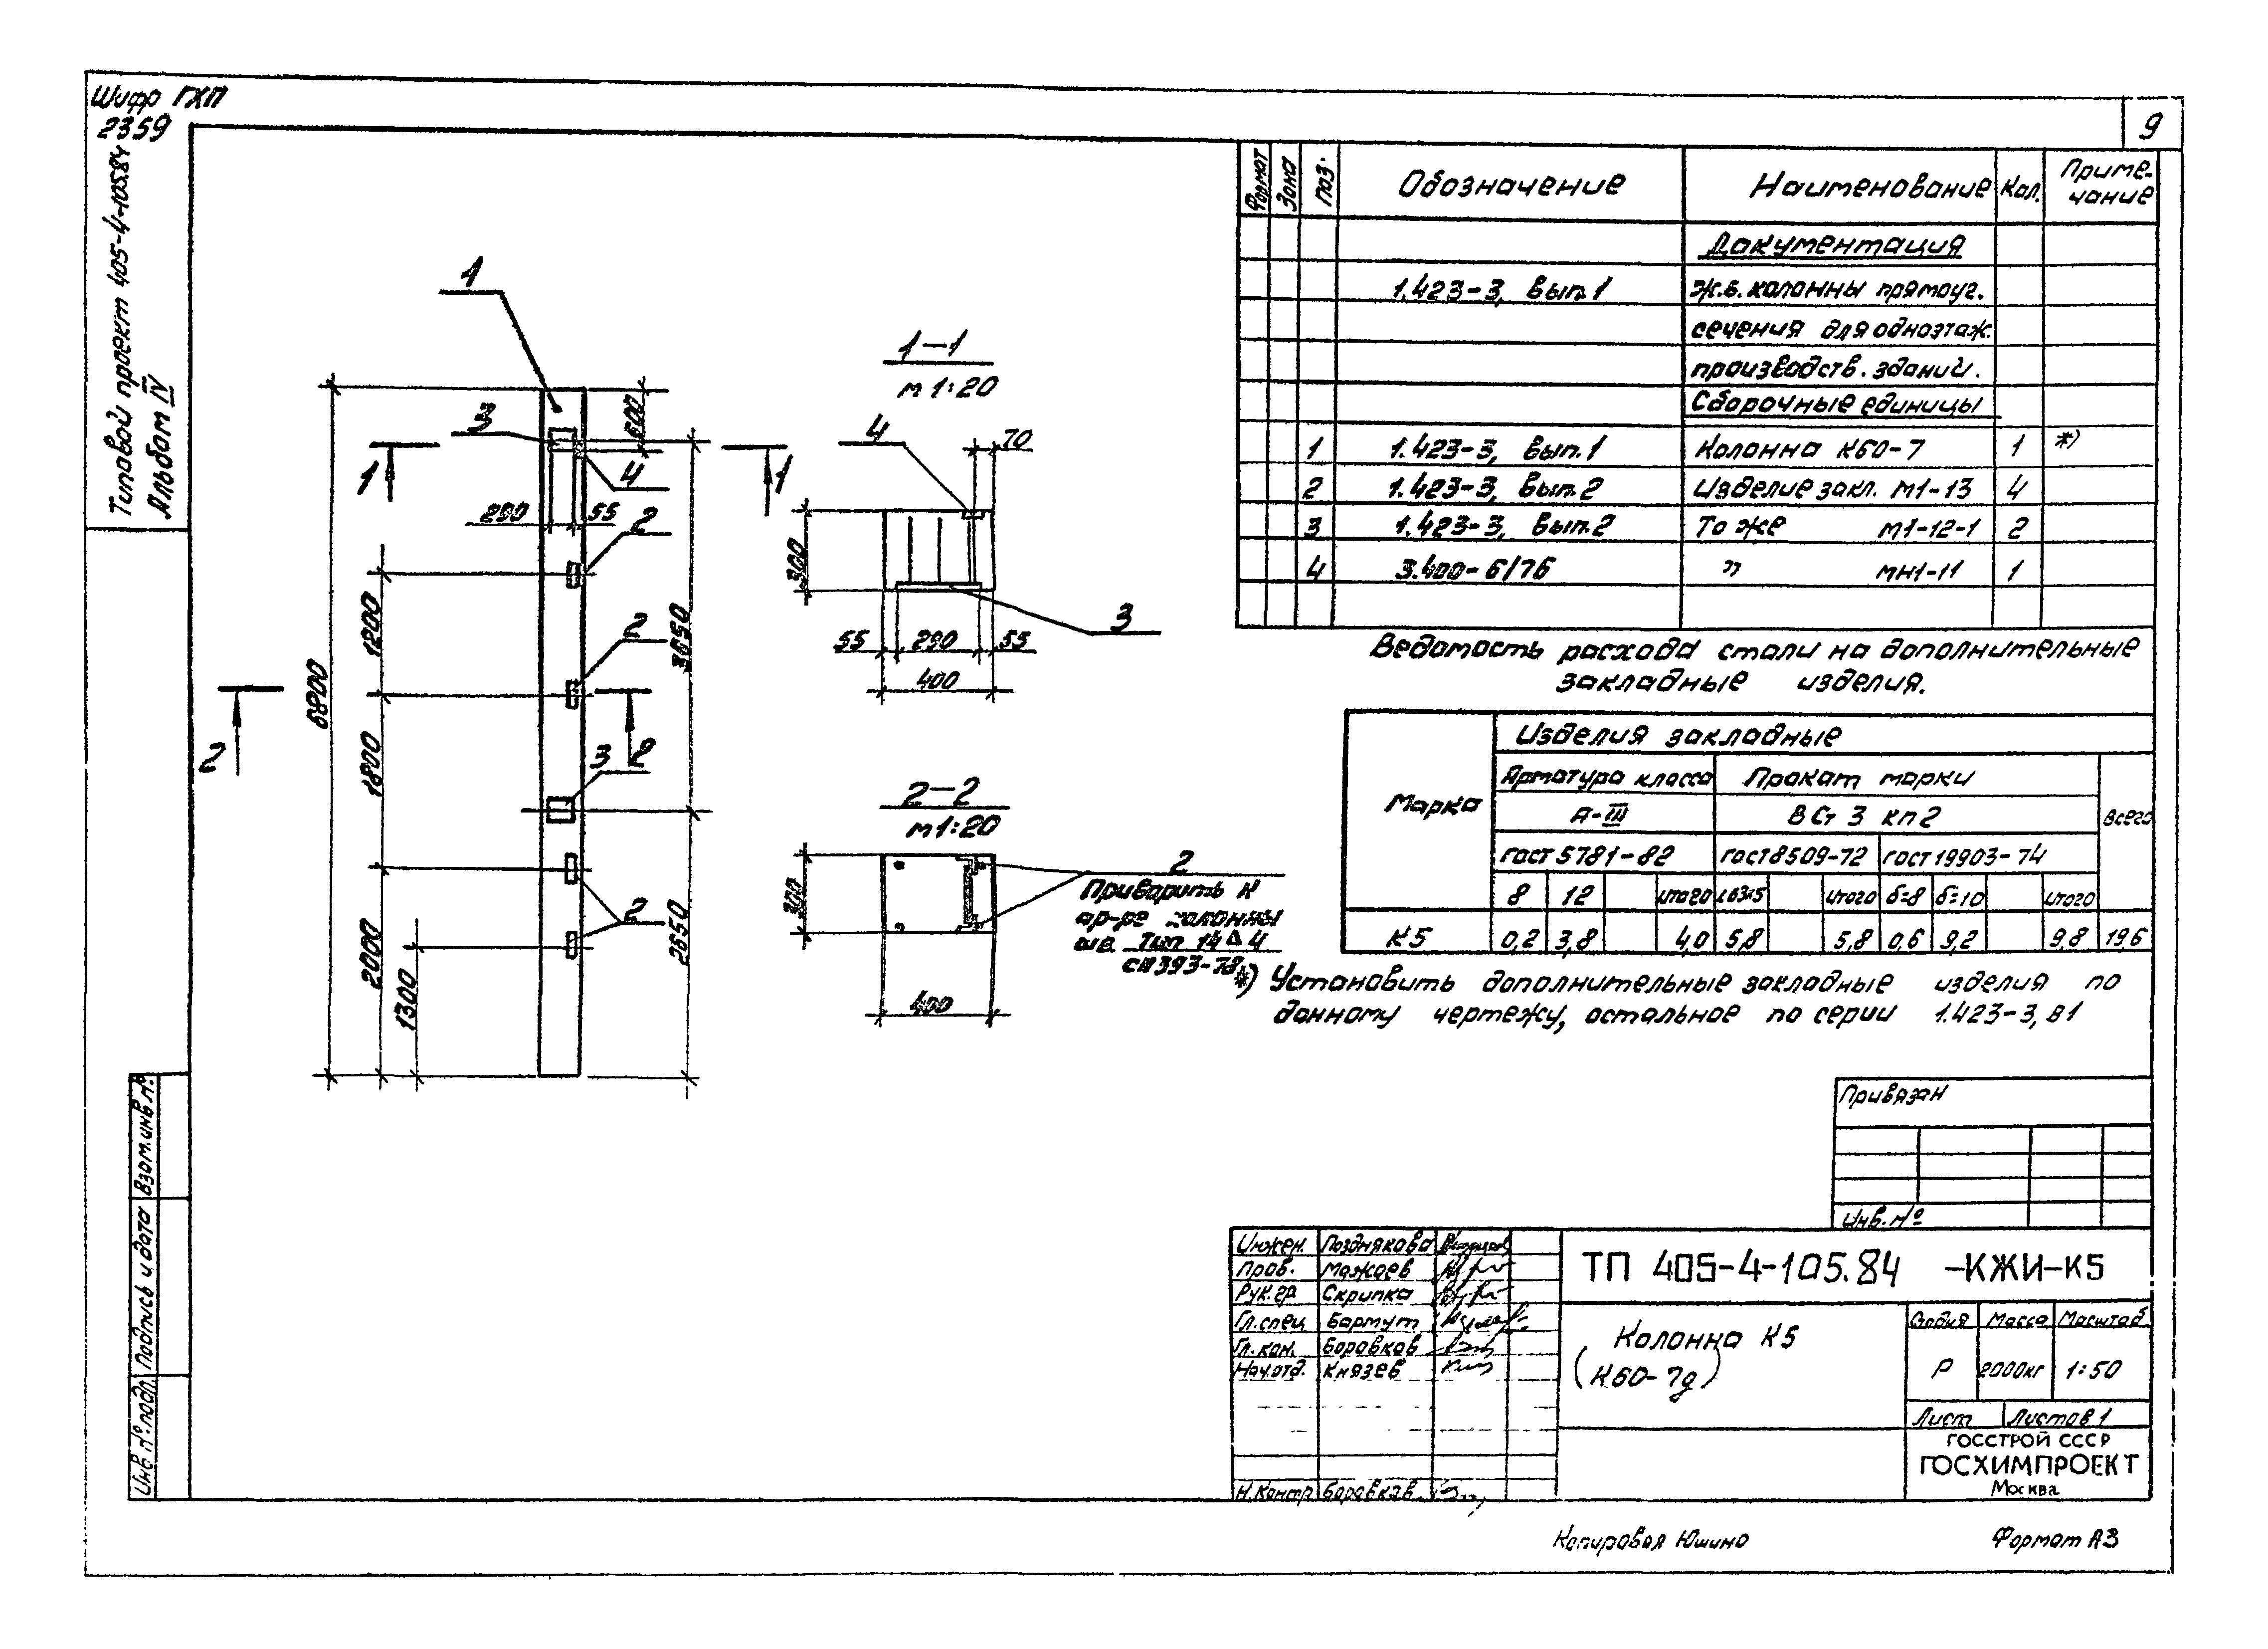 Шифр ГХП
2359
Типовой проект 405-4-105.84
Альбом IV
9
1
3
600
1
1
4
290 55
2
1200
2
3650
6800
2
1800
3 2
2000
2
2650
1300
1-1
м 1:20
4
70
300
3
55 290 55
400
2-2
м 1:20
300
2
Приварить к
ар-ре колонны
шв. Тип 14 Δ 4
СН 393-78
400
Формат Зона Поз. Обозначение Наименование Кол. Приме-
чание
Документация
1.423-3, вып.1 Ж.б. колонны прямоуг.
сечения для одноэтаж.
производств. зданий.
Сборочные единицы
1 1.423-3, вып.1 Колонна К60-7 1 *)
2 1.423-3, вып.2 Изделие закл. М1-13 4
3 1.423-3, вып.2 То же М1-12-1 2
4 3.400-6/76 " МН1-11 1
Ведомость расхода стали на дополнительные
закладные изделия.
Марка Изделия закладные
Арматура класса Прокат марки Всего
А-III ВСт 3 кп2
ГОСТ 5781-82 ГОСТ 8509-72 ГОСТ 19903-74
8 12 Итого L63×5 Итого б=8 б=10 Итого
К5 0,2 3,8 4,0 5,8 5,8 0,6 9,2 9,8 19,6
*) Установить дополнительные закладные изделия по
данному чертежу, остальное по серии 1.423-3, в1
Привязан
Инв. №
Инжен. Позднякова
Пров. Мажаев
Рук. гр Скрипка
Гл. спец Бармут
Гл. кон. Боровков
Нач. отд. Князев
Н. Контр Боровков
ТП 405-4-105.84 -КЖИ-К5
Колонна К5
(К60-7д)
Стадия Масса Масштаб
Р 2000кг 1:50
Лист Листов 1
ГОССТРОЙ СССР
ГОСХИМПРОЕКТ
Москва
Взам. инв. №
Подпись и дата
Инв. № подл.
Копировал Юшина
Формат А3